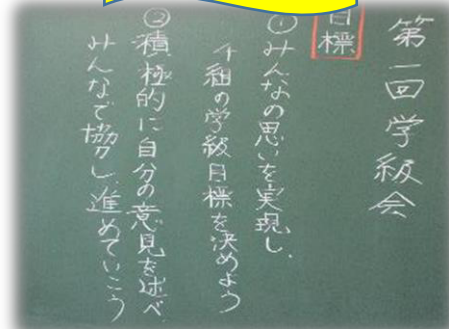 第一回学級会
目標
①みんなの思いを実現し、
イ組の学級目標を決めよう
②積極的に自分の意見を述べ、
みんなで協力し、進めていこう